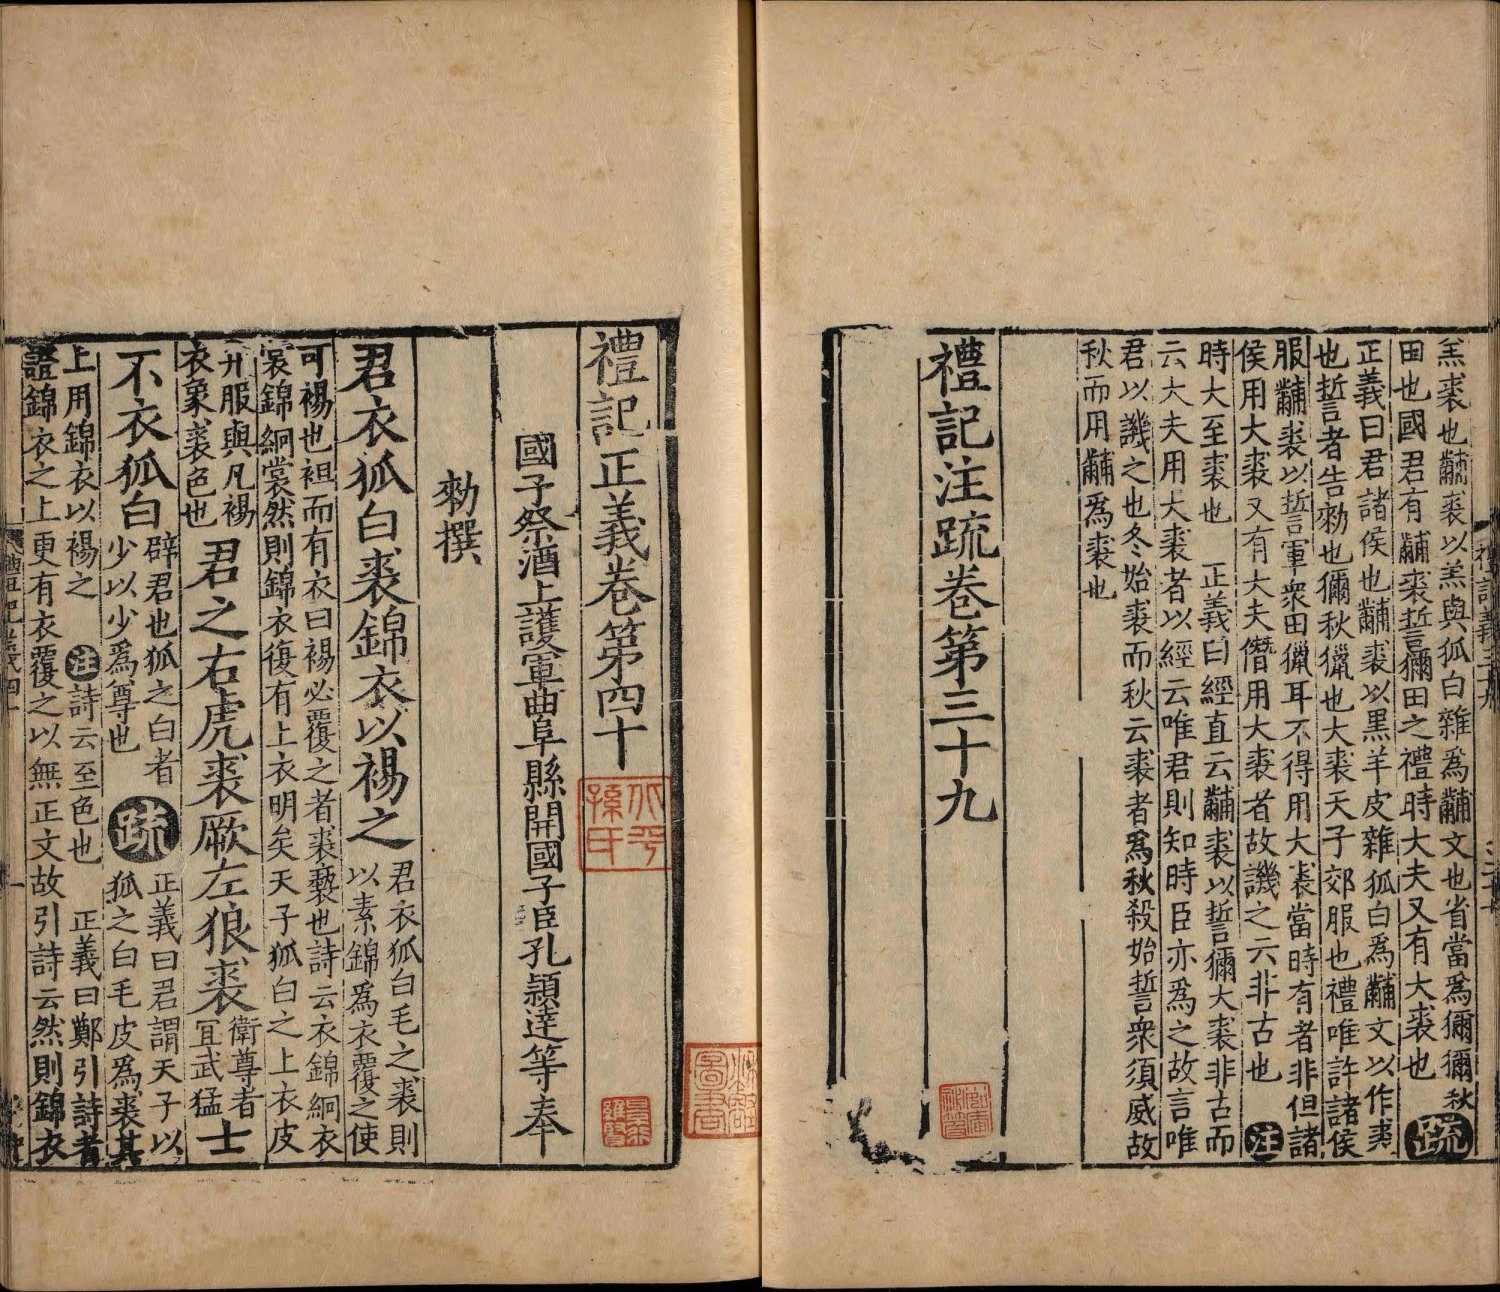 羔裘也黼裘以羔與狐白雜爲黼文也省當爲獮獮秋
田也國君有黼裘誓獮田之禮時大夫又有大裘也 疏
正義曰君諸侯也黼裘以黑羊皮雜狐白為黼文以作裘
也誓者告勑也獮秋獵也大裘天子郊服也禮唯許諸侯
服黼裘以誓軍衆田獵耳不得用大裘當時有者非但諸
侯用大裘又有大夫僭用大裘者故譏之云非古也 注
時大至裘也 正義曰經直云黼裘以誓獮大裘非古而
云大夫用大裘者以經云唯君則知時臣亦為之故言唯
君以譏之也冬始裘而秋云裘者爲秋殺始誓衆須威故
秋而用黼爲裘也
禮記注疏卷第三十九
禮記正義卷第四十
國子祭酒上護軍曲阜縣開國子臣孔穎達等奉
勑撰
君衣狐白裘錦衣以裼之 君衣狐白毛之裘則
以素錦爲衣覆之使
可裼也袒而有衣曰裼必覆之者裘褻也詩云衣錦絅衣
裳錦絅裳然則錦衣復有上衣明矣天子狐白之上衣皮
弁服與凡裼
衣象裘色也 君之右虎裘厥左狼裘 衛尊者
宜武猛 士
不衣狐白 辟君也狐之白者
少以少爲尊也 疏 正義曰君謂天子以
狐之白毛皮爲裘其
上用錦衣以裼之 注詩云至色也 正義曰鄭引詩者
證錦衣之上更有衣覆之以無正文故引詩云然則錦衣
孫氏